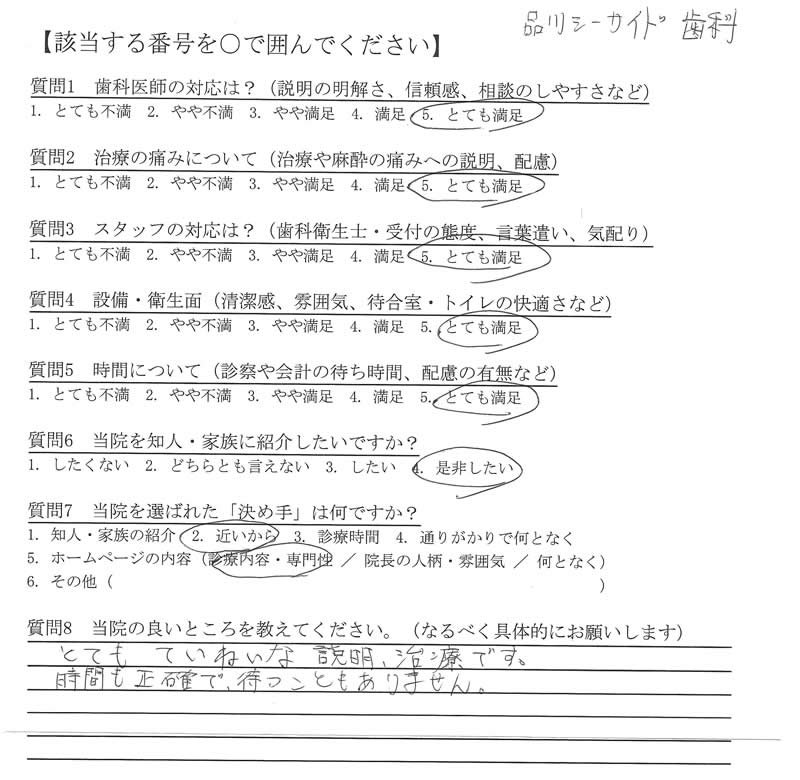 品川シーサイド歯科
【該当する番号を○で囲んでください】
質問1 歯科医師の対応は？（説明の明解さ、信頼感、相談のしやすさなど）
1. とても不満 2. やや不満 3. やや満足 4. 満足 5. とても満足
質問2 治療の痛みについて（治療や麻酔の痛みへの説明、配慮）
1. とても不満 2. やや不満 3. やや満足 4. 満足 5. とても満足
質問3 スタッフの対応は？（歯科衛生士・受付の態度、言葉遣い、気配り）
1. とても不満 2. やや不満 3. やや満足 4. 満足 5. とても満足
質問4 設備・衛生面（清潔感、雰囲気、待合室・トイレの快適さなど）
1. とても不満 2. やや不満 3. やや満足 4. 満足 5. とても満足
質問5 時間について（診察や会計の待ち時間、配慮の有無など）
1. とても不満 2. やや不満 3. やや満足 4. 満足 5. とても満足
質問6 当院を知人・家族に紹介したいですか？
1. したくない 2. どちらとも言えない 3. したい 4. 是非したい
質問7 当院を選ばれた「決め手」は何ですか？
1. 知人・家族の紹介 2. 近いから 3. 診療時間 4. 通りがかりで何となく
5. ホームページの内容（診療内容・専門性 ／ 院長の人柄・雰囲気 ／ 何となく）
6. その他（ ）
質問8 当院の良いところを教えてください。（なるべく具体的にお願いします）
とても ていねいな 説明、治療です。
時間も正確で、待つこともありません。